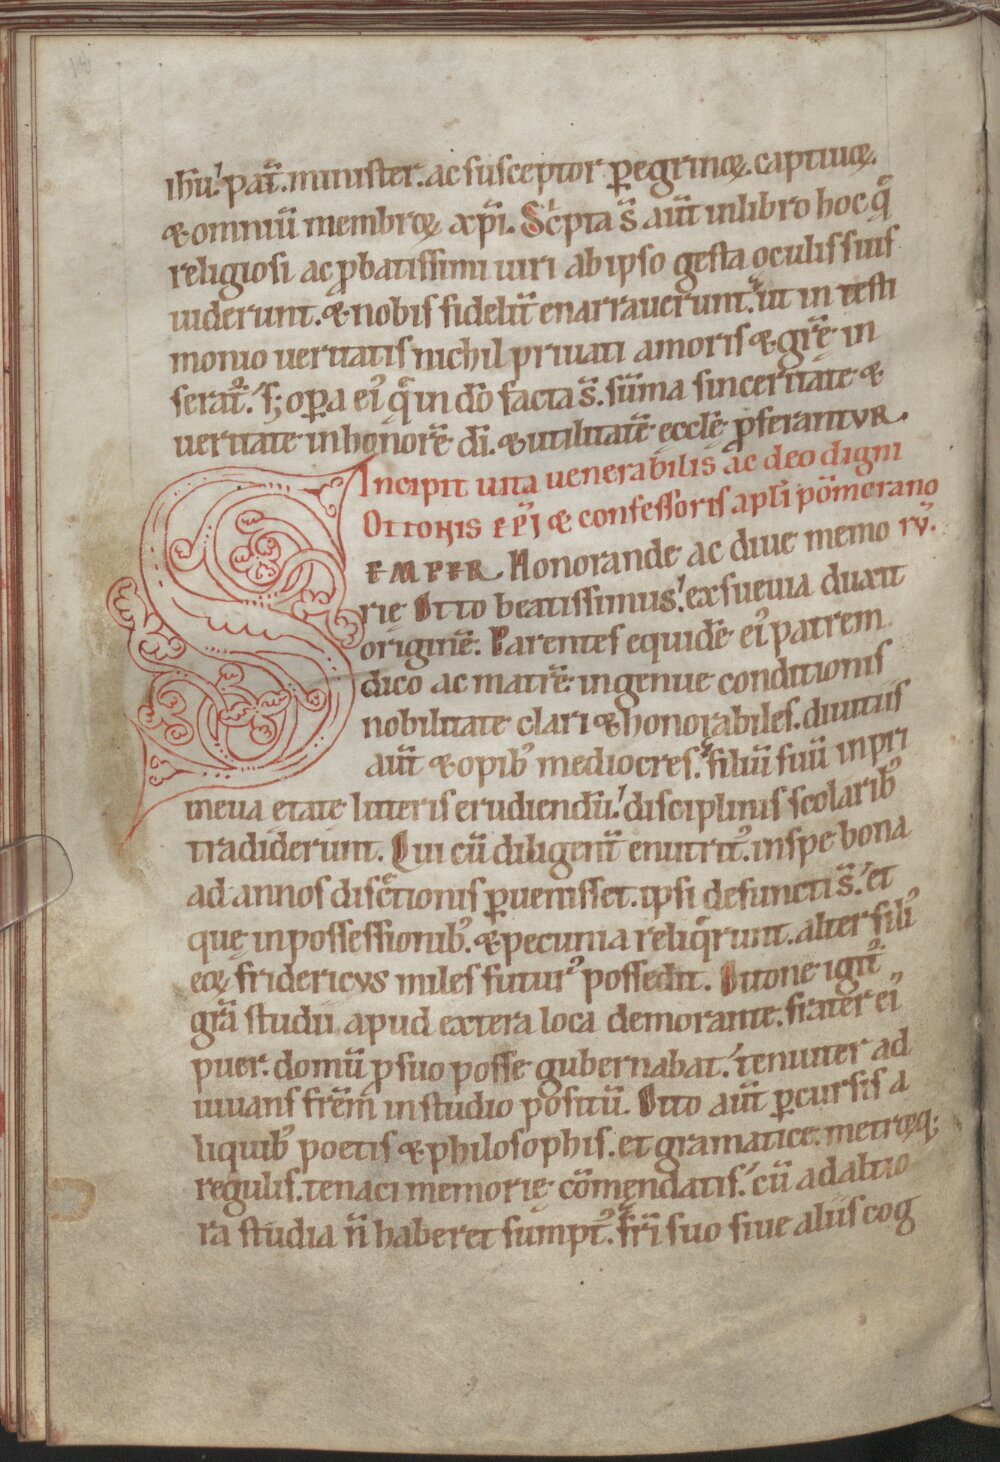 ihū. pat̄. minister. ac susceptor p̲egrinoꝝ. captiuoꝝ.
⁊ omniū membroꝝ xp̄i. Sc̓pta s̄ aut̄ in libro hoc q̄
religiosi ac ꝓbatissimi uiri ab ipso gesta oculis suis
uiderunt. ⁊ nobis fidelit̄ enarrauerunt. ut in testi
monio ueritatis nichil priuati amoris ⁊ gr̄ę in
serat᷑. sꝫ oꝑa ei᾿ q̄ in dō facta s̄. sūma sinceritate ⁊
ueritate in honorē dī. ⁊ utilitatē ecclę̄ ꝓferantur.
Incipit uita uenerabilis ac deo digni
Ottonis epī ⁊ confessoris apl̄i pōmerano
rū.
SEMPER Honorande ac diue memo
rię Otto beatissimus. ex sueuia duxit
originē. Parentes equidē ei᾿ patrem
dico ac matrē. ingenue conditionis
nobilitate clari ⁊ honorabiles. diuitiis
aut̄ ⁊ opib᾿ mediocres. filiū suū in pri
meua etate litteris erudiendū. disciplinis scolarib᾿
tradiderunt. Qui cū diligent̄ enutrit᾿. in spe bona
ad annos disc̄tionis ꝑuenisset. ipsi defuncti s̄. et
quę in possessionib᾿. ⁊ pecunia reliq̄runt. alter fili᾿
eoꝝ fridericus miles futur᾿ possedit. Ottone igit᷑
grā studii apud extera loca demorante. frater ei᾿
puer. domū ꝓ suo posse gubernabat. tenuiter ad
iuuans frēm in studio positū. Otto aut̄ ꝑcursis a
liquib᾿ poetis ⁊ philosophis. et gramatice. metroꝝq;
regulis. tenaci memorię cōmendatis. cū ad altio
ra studia n̄ haberet sumpt᾿. fr̄i suo siue aliis cog